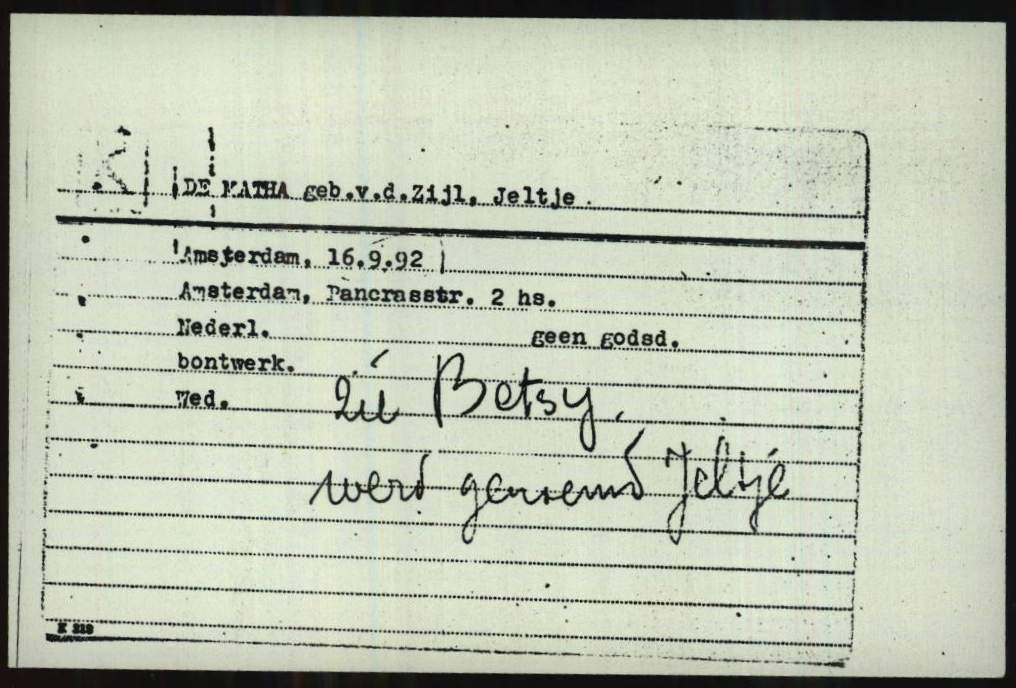 K
DE MATHA geb.v.d.Zijl, Jeltje.
Amsterdam, 16.9.92
Amsterdam, Pancrasstr. 2 hs.
Nederl. geen godsd.
bontwerk.
Wed. zie Betsy.
werd genoemd Jeltje
K 219